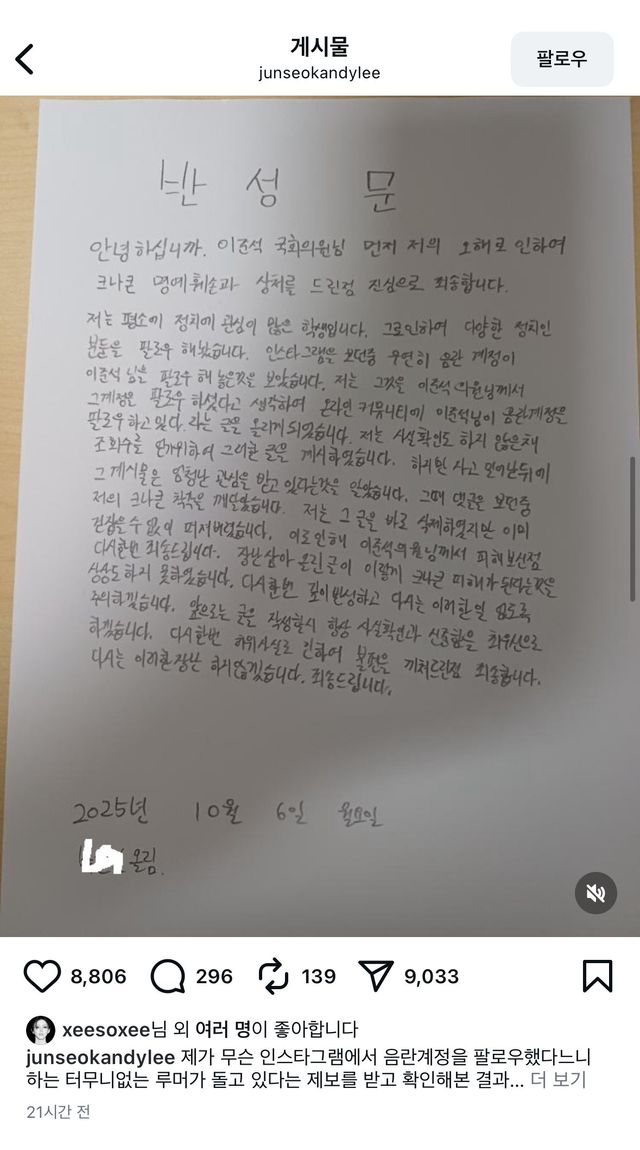 게시물
junseokandylee
팔로우
반 성 문
안녕하십니까. 이준석 국회의원님 먼저 저의 오해로 인하여
크나큰 명예훼손과 상처를 드린점 진심으로 죄송합니다.
저는 평소에 정치에 관심이 많은 학생입니다. 그로인하여 다양한 정치인
분들을 팔로우 해놨습니다. 인스타그램을 보던중 우연히 음란 계정이
이준석 님을 팔로우 해 놓은것을 보았습니다. 저는 그것을 이준석 의원님께서
그계정을 팔로우 하셨다고 생각하여 온라인 커뮤니티에 이준석님이 음란계정을
팔로우하고있다.라는 글을 올리게되었습니다. 저는 사실확인도 하지 않은채
조회수를 얻기위하여 그러한 글을 게시하였습니다. 하지만 사고 일어난뒤에
그게시물은 엄청난 관심을 받고 있다는것을 알았습니다. 그때 댓글을 보던중
저의 크나큰 착각을 깨달았습니다. 저는 그글을 바로 삭제하였지만 이미
걷잡을수 없이 퍼져버렸습니다. 이로인해 이준석의원님께서 피해보신점
다시한번 죄송드립니다. 장난삼아 올린글이 이렇게 크나큰 피해가 된다는것을
상상도 하지 못하였습니다. 다시한번 깊이반성하고 다시는 이러한일 없도록
주의하겠습니다. 앞으로는 글을 작성할시 항상 사실확인과 신중함을 최우선으로
하겠습니다. 다시한번 허위사실로 인하여 불편을 끼쳐드린점 죄송합니다.
다시는 이러한장난 하지않겠습니다. 죄송드립니다.
2025년 10월 6일 월요일
올림.
8,806 296 139 9,033
xeesoxee님 외 여러 명이 좋아합니다
junseokandylee 제가 무슨 인스타그램에서 음란계정을 팔로우했다느니
하는 터무니없는 루머가 돌고 있다는 제보를 받고 확인해본 결과... 더 보기
21시간 전